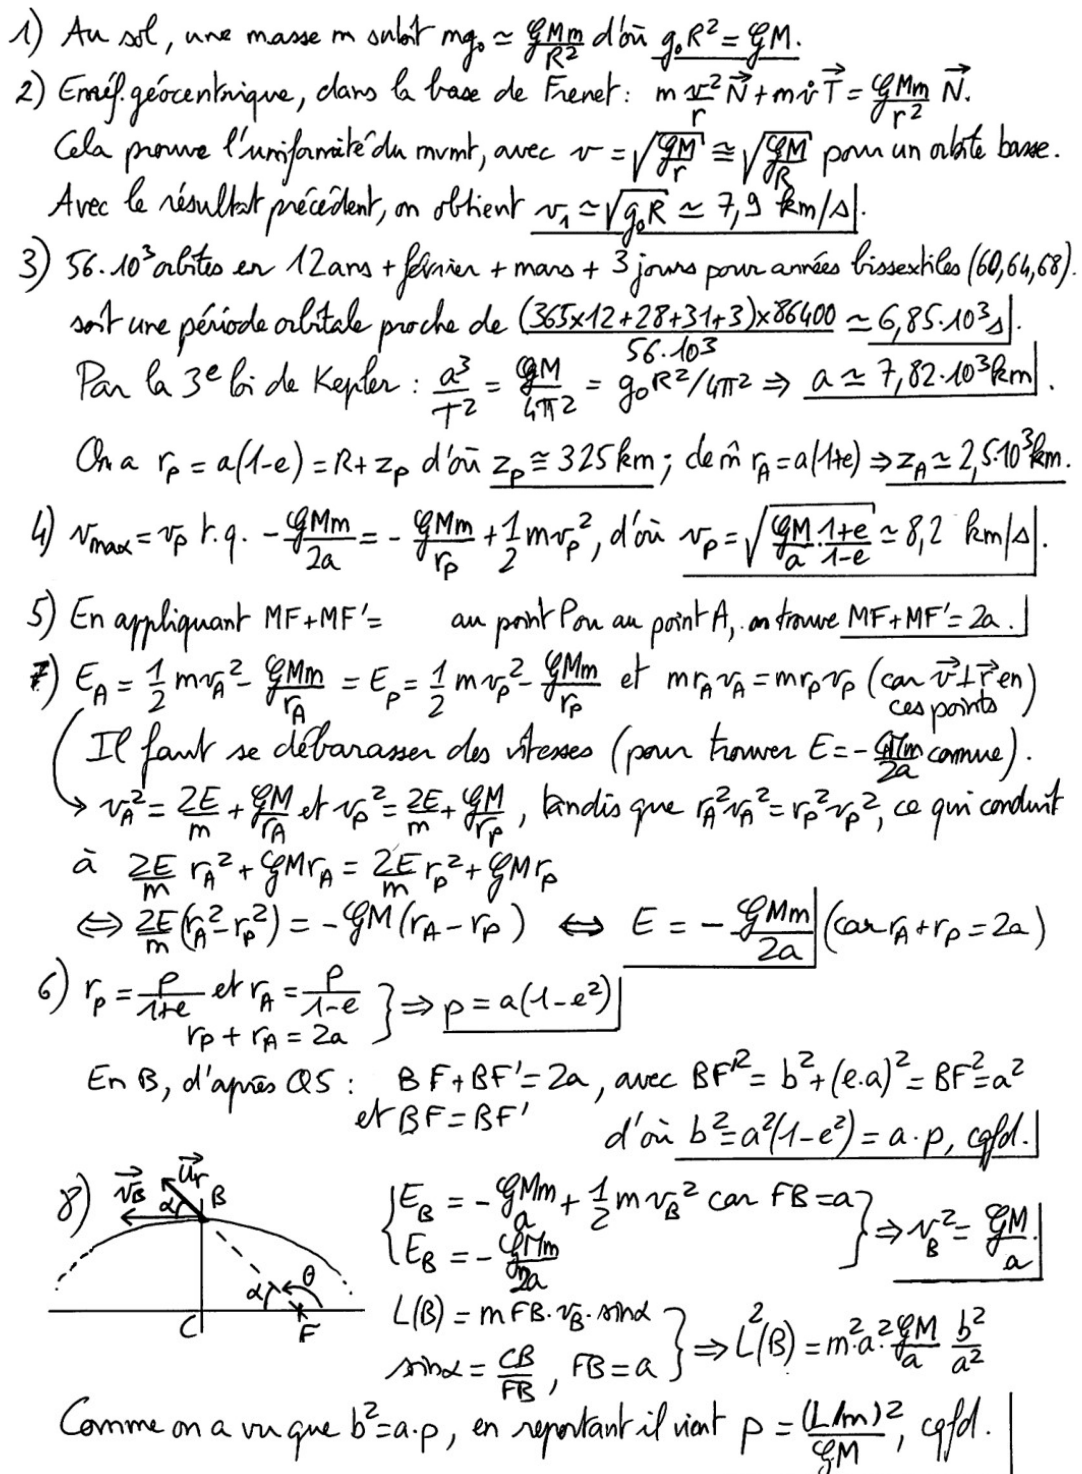 1) Au sol, une masse m subit mg₀ ≃ 𝒢Mm/R² d'où g₀R² = 𝒢M.
2) En réf. géocentrique, dans la base de Frenet : m v²/r N⃗ + m v̇ T⃗ = 𝒢Mm/r² N⃗.
Cela prouve l'uniformité du mvmt, avec v = √(𝒢M/r) ≅ √(𝒢M/R) pour un orbite basse.
Avec le résultat précédent, on obtient v₁ ≃ √(g₀R) ≃ 7,9 km/s.
3) 56.10³ orbites en 12 ans + février + mars + 3 jours pour années bissextiles (60,64,68).
soit une période orbitale proche de (365×12+28+31+3)×86400/56.10³ ≃ 6,85.10³ s.
Par la 3e loi de Kepler : a³/T² = 𝒢M/4π² = g₀R²/4π² ⇒ a ≃ 7,82.10³ km.
On a rₚ = a(1-e) = R + zₚ d'où zₚ ≅ 325 km ; de m̂ r_A = a(1+e) ⇒ z_A ≃ 2,5.10³ km.
4) v_max = vₚ t.q. -𝒢Mm/2a = -𝒢Mm/rₚ + 1/2 mvₚ², d'où vₚ = √(𝒢M/a · 1+e/1-e) ≃ 8,2 km/s.
5) En appliquant MF+MF'= au point P ou au point A, on trouve MF+MF' = 2a.
7) E_A = 1/2 mv_A² - 𝒢Mm/r_A = Eₚ = 1/2 mvₚ² - 𝒢Mm/rₚ et mr_A v_A = mrₚvₚ (car v⃗ ⊥ r⃗ en ces points)
Il faut se débarasser des vitesses (pour trouver E = -𝒢Mm/2a connue).
→ v_A² = 2E/m + 𝒢M/r_A et vₚ² = 2E/m + 𝒢M/rₚ, tandis que r_A²v_A² = rₚ²vₚ², ce qui conduit
à 2E/m r_A² + 𝒢Mr_A = 2E/m rₚ² + 𝒢Mrₚ
⇔ 2E/m (r_A² - rₚ²) = -𝒢M(r_A - rₚ) ⇔ E = -𝒢Mm/2a (car r_A + rₚ = 2a)
6) rₚ = p/1+e et r_A = p/1-e
rₚ + r_A = 2a } ⇒ p = a(1-e²)
En B, d'après Q5 : BF + BF' = 2a, avec BF'² = b² + (e.a)² = BF² = a²
et BF = BF' d'où b² = a²(1-e²) = a.p, cqfd.
8) v⃗_B u⃗_r B α
α θ
C F
{ E_B = -𝒢Mm/a + 1/2 mv_B² car FB = a
E_B = -𝒢Mm/2a } ⇒ v_B² = 𝒢M/a.
L(B) = m FB. v_B. sinα
sinα = CB/FB, FB = a } ⇒ L²(B) = m².a².𝒢M/a b²/a²
Comme on a vu que b² = a.p, en reportant il vient p = (L/m)²/𝒢M, cqfd.